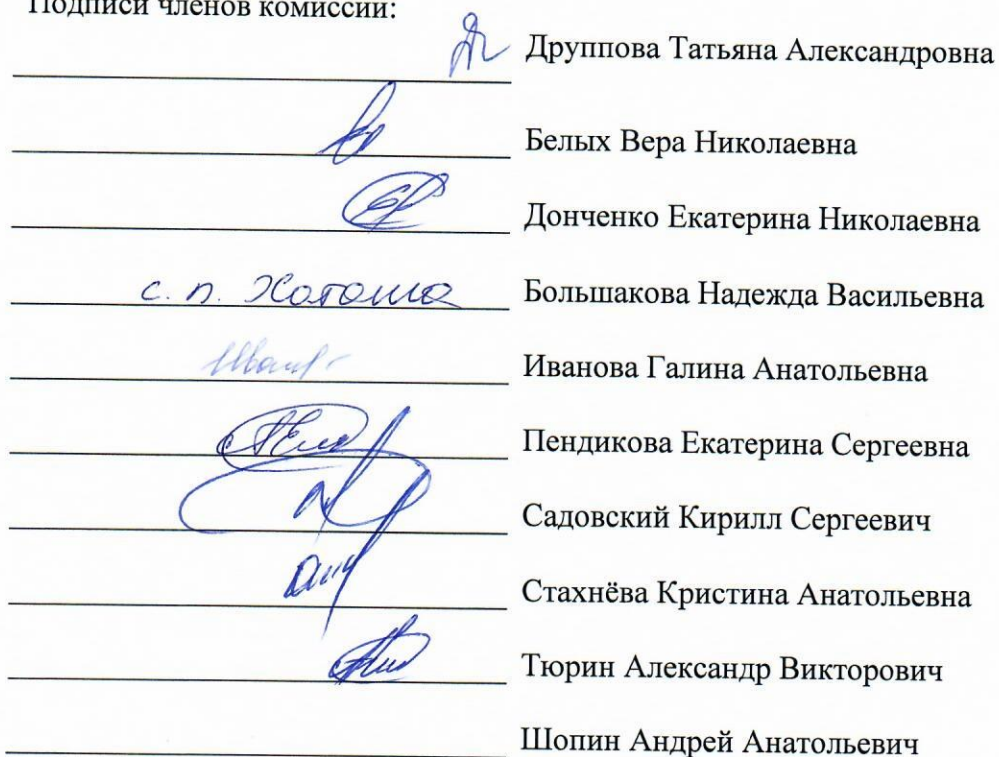 Подписи членов комиссии:
Друппова Татьяна Александровна
Белых Вера Николаевна
Донченко Екатерина Николаевна
с. п. Хотошо Большакова Надежда Васильевна
Иванова Галина Анатольевна
Пендикова Екатерина Сергеевна
Садовский Кирилл Сергеевич
Стахнёва Кристина Анатольевна
Тюрин Александр Викторович
Шопин Андрей Анатольевич